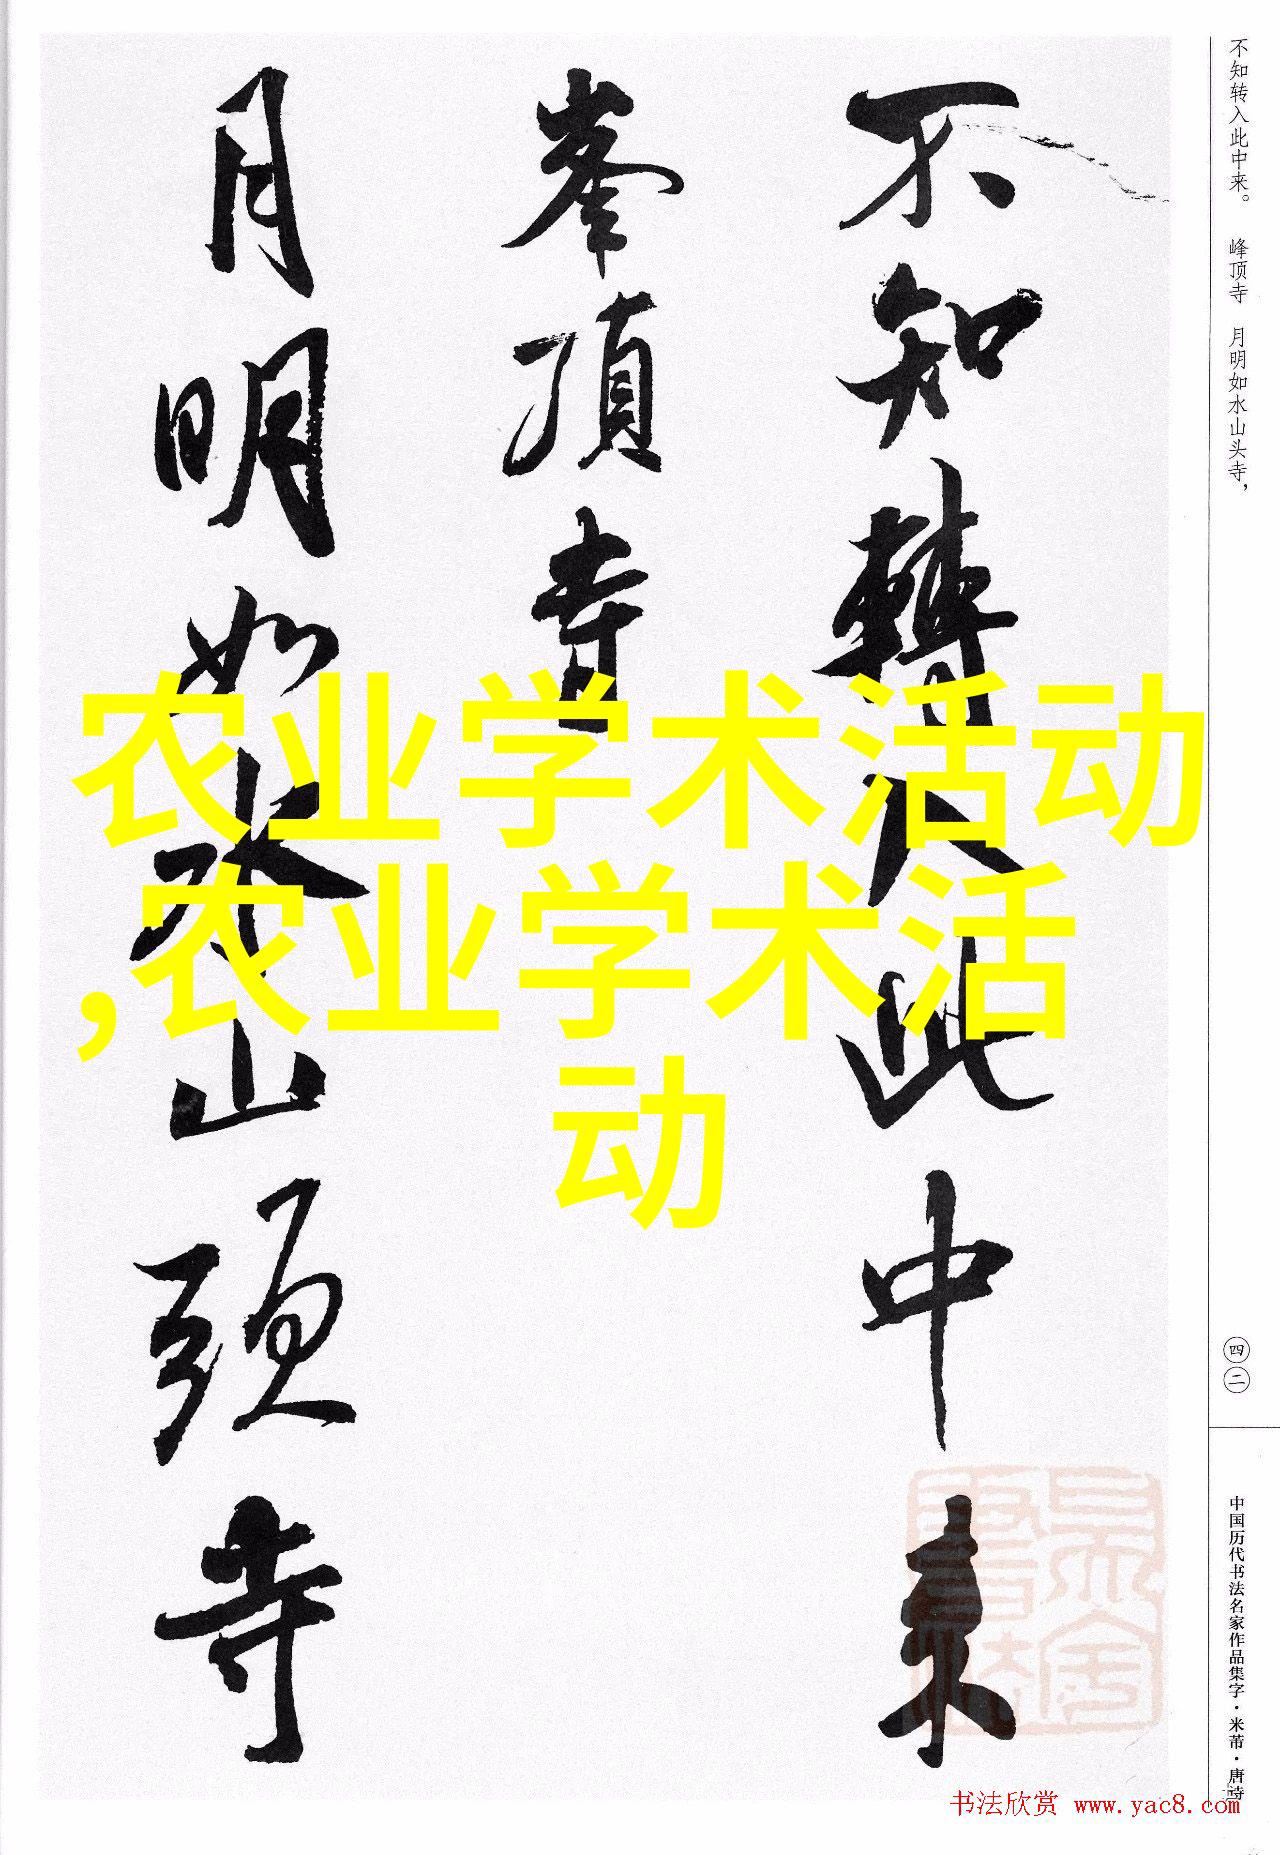 不知轉入此中来
峯頂寺
月明如水山頭寺
不知转入此中来。 峰顶寺 月明如水山头寺，
四二
中国历代书法名家作品集字·米芾·唐诗
农业学术活动
,农业学术活
动
书法欣赏 www.yac8.com